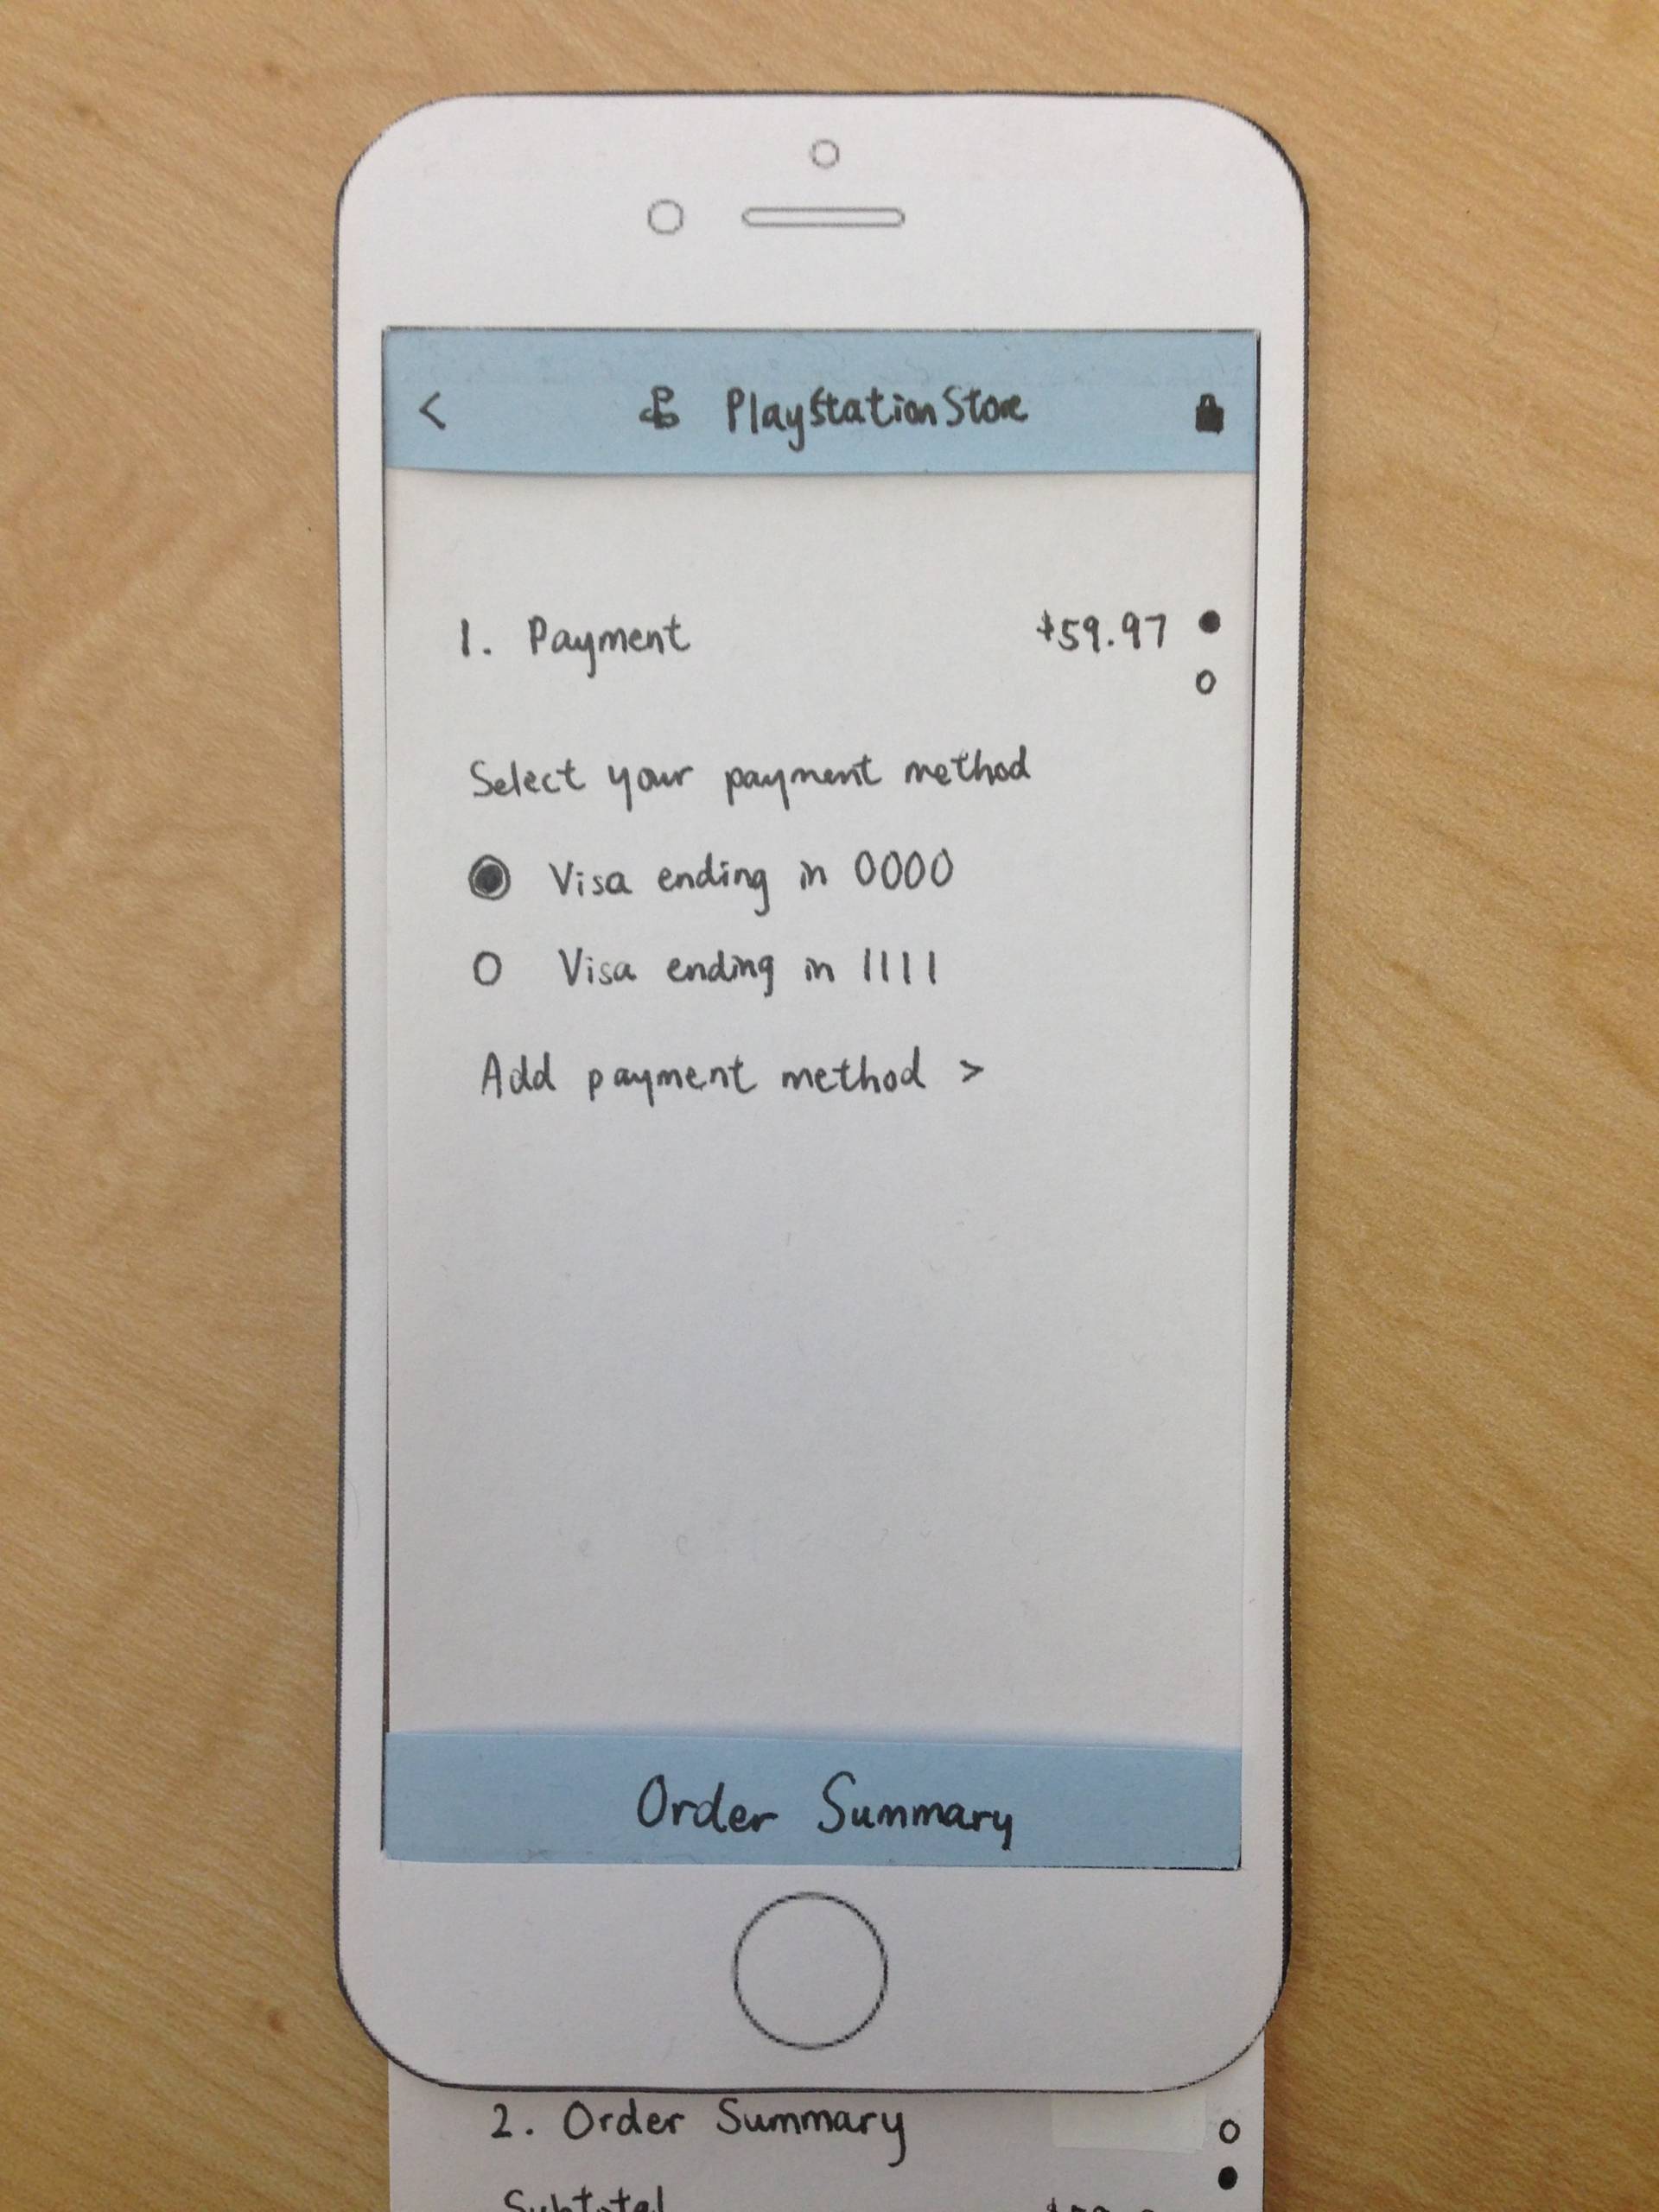 < PlayStation Store
1. Payment $59.97
Select your payment method
Visa ending in 0000
Visa ending in 1111
Add payment method >
Order Summary
2. Order Summary
Subtotal